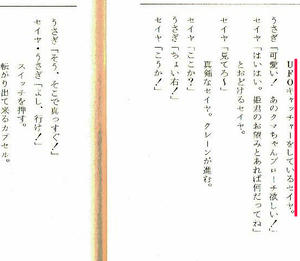 UFOキャッチャーをしているセイヤ。
うさぎ「可愛い！　あのクッちゃんブローチ欲しい！」
セイヤ「はいはい。姫君のお望みとあれば何だってね」
とおどけるセイヤ。
セイヤ「見てろ〜」
真剣なセイヤ。クレーンが進む。
うさぎ「ちょい右！」
セイヤ「ここか？」
セイヤ「こうか！」
うさぎ「そう、そこで真っすぐ！」
セイヤ・うさぎ「よし、行け！」
スイッチを押す。
転がり出て来るカプセル。